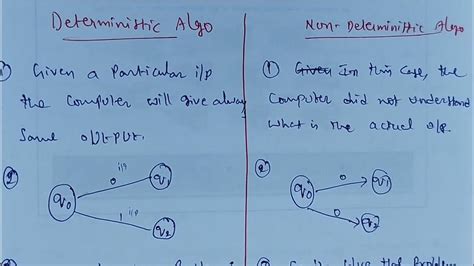 Deterministic Algo
Non-Deterministic Algo
1) Given a Particular i/p
the Computer will give always
Same output.
① Given In this Case, the
Computer did not understand
what is the actual o/p.
2
q0
0
i/p
q1
1
i/p
q2
2
q0
0
q1
0
q2